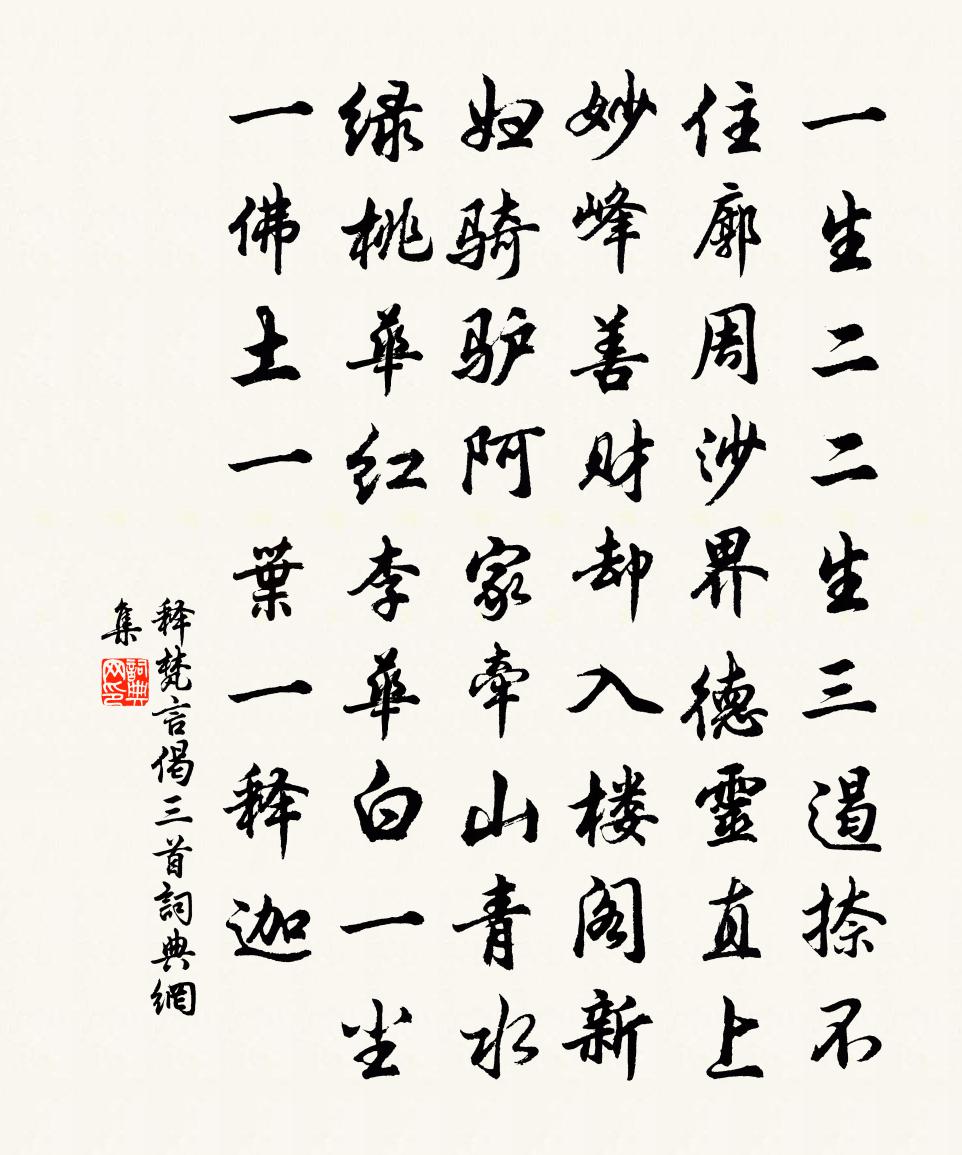 一生二二生三遏捺不
住廓周沙界德靈直上
妙峰善财却入楼阁新
妇骑驴阿家牵山青水
绿桃華红李華白一尘
一佛土一葉一释迦
释梵言偈三首詞典網
集
詞典网印